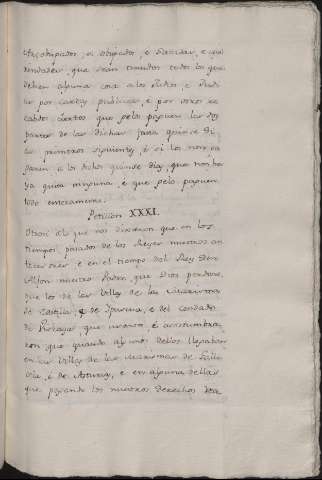 Arzobispados, a obispados, e Sacadas, e que
tenudos todos los que
deben alguna cosa a los Judios, e Judi
as por cartas publicas, e por otros re
cabdos ciertos que pelo paguen las dos
partes de las dichas fasta quinse di
as primeros siguientes, e si los non pa
garen a los dichos quinse dias, que non ha
ya quita ninguna, e que pelo paguen
todo enteramente.
Peticion XXXI.
Otrosi a lo que nos dixieron que en los
tiempos pasados de los Reyes nuestros an
tecesores, e en el tiempo del Rey Don
Alfon nuestro Padre, que Dios perdone,
que los de las Villas de las
de Castilla, e de Guipuzcua, e del Condado
de Vizcaya, que usaron, e acostumbra
ron que quando algunos dellos llegaban
en las Villas de las marismas de Galli
cia, e de Asturias, e en alguna dellas
que pagando los nuestros derechos